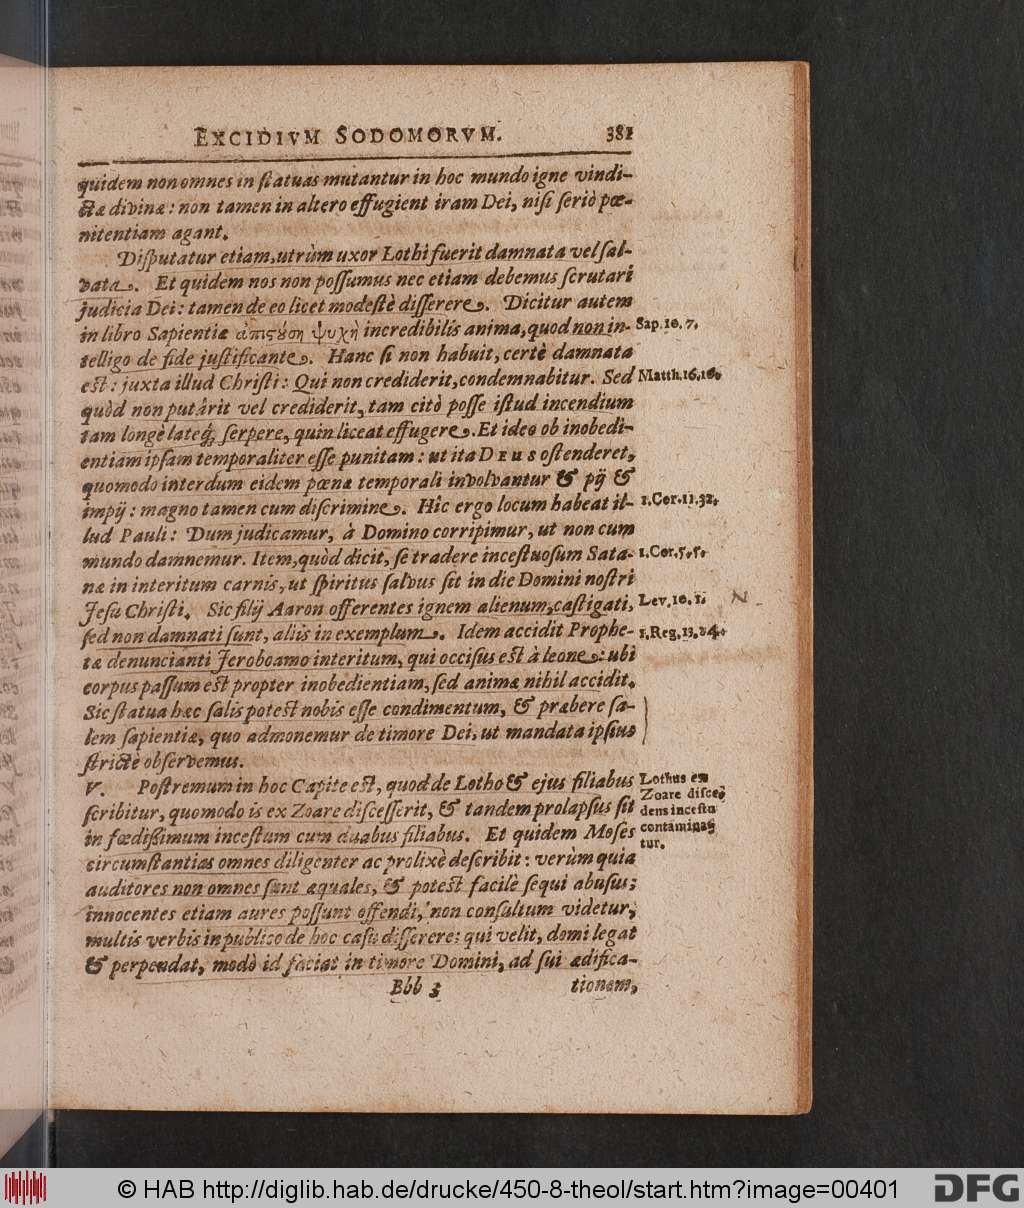 EXCIDIVM SODOMORVM. 381
quidem non omnes in statuas mutantur in hoc mundo igne vindi-
ctæ divinæ: non tamen in altero effugient iram Dei, nisi seriò pœ-
nitentiam agant.
Disputatur etiam, utrùm uxor Lothi fuerit damnata vel sal-
vata. Et quidem nos non possumus nec etiam debemus scrutari
judicia Dei: tamen de eo licet modestè disserere. Dicitur autem
in libro Sapientiæ ἀπιστούση ψυχὴ incredibilis anima, quod non in-
telligo de fide justificante. Hanc si non habuit, certè damnata
est: juxta illud Christi: Qui non crediderit, condemnabitur. Sed
quòd non putârit vel crediderit, tam citò posse istud incendium
tam longè lateq́; serpere, quin liceat effugere. Et ideo ob inobedi-
entiam ipsam temporaliter esse punitam: ut ita DEUS ostenderet,
quomodo interdum eidem pœnæ temporali involvantur & pij &
impij: magno tamen cum discrimine. Hîc ergo locum habeat il-
lud Pauli: Dum judicamur, à Domino corripimur, ut non cum
mundo damnemur. Item, quòd dicit, se tradere incestuosum Sata-
næ in interitum carnis, ut spiritus salvus sit in die Domini nostri
Jesu Christi. Sic filij Aaron offerentes ignem alienum, castigati,
sed non damnati sunt, aliis in exemplum. Idem accidit Prophe-
tæ denuncianti Jeroboamo interitum, qui occisus est à leone: ubi
corpus passum est propter inobedientiam, sed animæ nihil accidit.
Sic statua hæc salis potest nobis esse condimentum, & præbere sa-
lem sapientiæ, quo admonemur de timore Dei, ut mandata ipsius
strictè observemus.
V. Postremum in hoc Capite est, quod de Lotho & ejus filiabus
scribitur, quomodo is ex Zoare discesserit, & tandem prolapsus sit
in fœdissimum incestum cum duabus filiabus. Et quidem Moses
circumstantias omnes diligenter ac prolixè describit: verùm quia
auditores non omnes sunt æquales, & potest facilè sequi abusus;
innocentes etiam aures possunt offendi, non consultum videtur,
multis verbis in publico de hoc casu disserere: qui velit, domi legat
& perpendat, modò id faciat in timore Domini, ad sui ædifica-
Bbb 3 tionem,
Sap. 10. 7.
Matth. 16. 16.
1. Cor. 11. 32.
1. Cor. 5. 5.
Lev. 10. 1.
1. Reg. 13. 24.
Lothus ex
Zoare disce-
dens incestu
contamina-
tur.
© HAB http://diglib.hab.de/drucke/450-8-theol/start.htm?image=00401
DFG